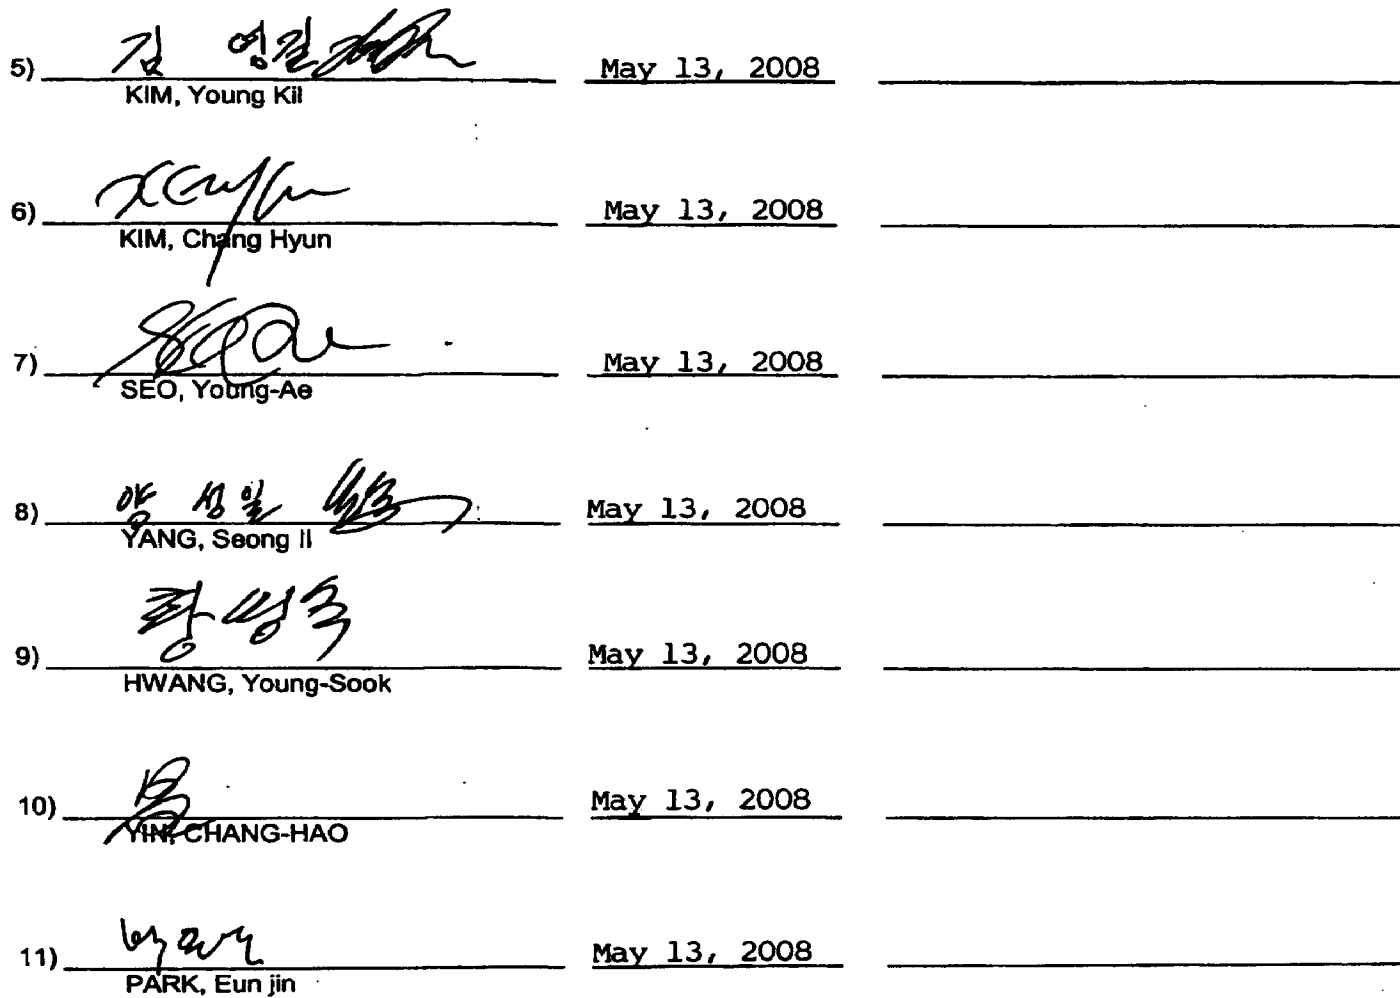 5) 김 영길 May 13, 2008
KIM, Young Kil
6) May 13, 2008
KIM, Chang Hyun
7) May 13, 2008
SEO, Young-Ae
8) 양 성일 May 13, 2008
YANG, Seong Il
9) 황영숙 May 13, 2008
HWANG, Young-Sook
10) May 13, 2008
YIN, CHANG-HAO
11) May 13, 2008
PARK, Eun jin